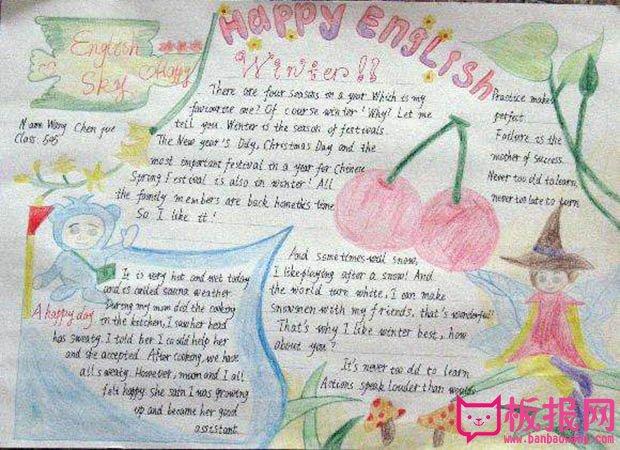 English
Sky
Happy
HAPPY ENGLISH
Winter!!
Name Wang Chen yue
Class: 505
There are four seasons in a year. Which is my
favourite one? Of course winter! Why? Let me
tell you. Winter is the season of festivals
The New year's Ddy, Christmas Day and the
most important festival in a year for Chinese
Spring Festival is also in winter! All
the family members are back
So I like it!
Practice makes
perfect.
Failure is the
mother of success.
Never too old to learn,
never too late to
And sometimes well snow,
I like playing after a snow! And
the world turn white, I can make
snowmen with my friends, that's wonderful!
That's why I like winter best, how
about you?
It's never too old to learn
Actions speak louder than
A happy day
It is very hot and wet today
and is called sauna weather
During my mum did the cooking
in the kitchen, I saw her head
has sweaty. I told her I could help her
and she accepted. After cooking, we have
all sweaty. However, mum and I all
felt happy. She sain I was growing
up and became her good
assistant.
板报网
www.banbaowang.com